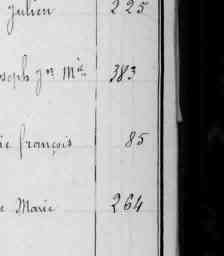 Julien 225
oseph Jn Mie 383
ie françois 85
e Marie 264